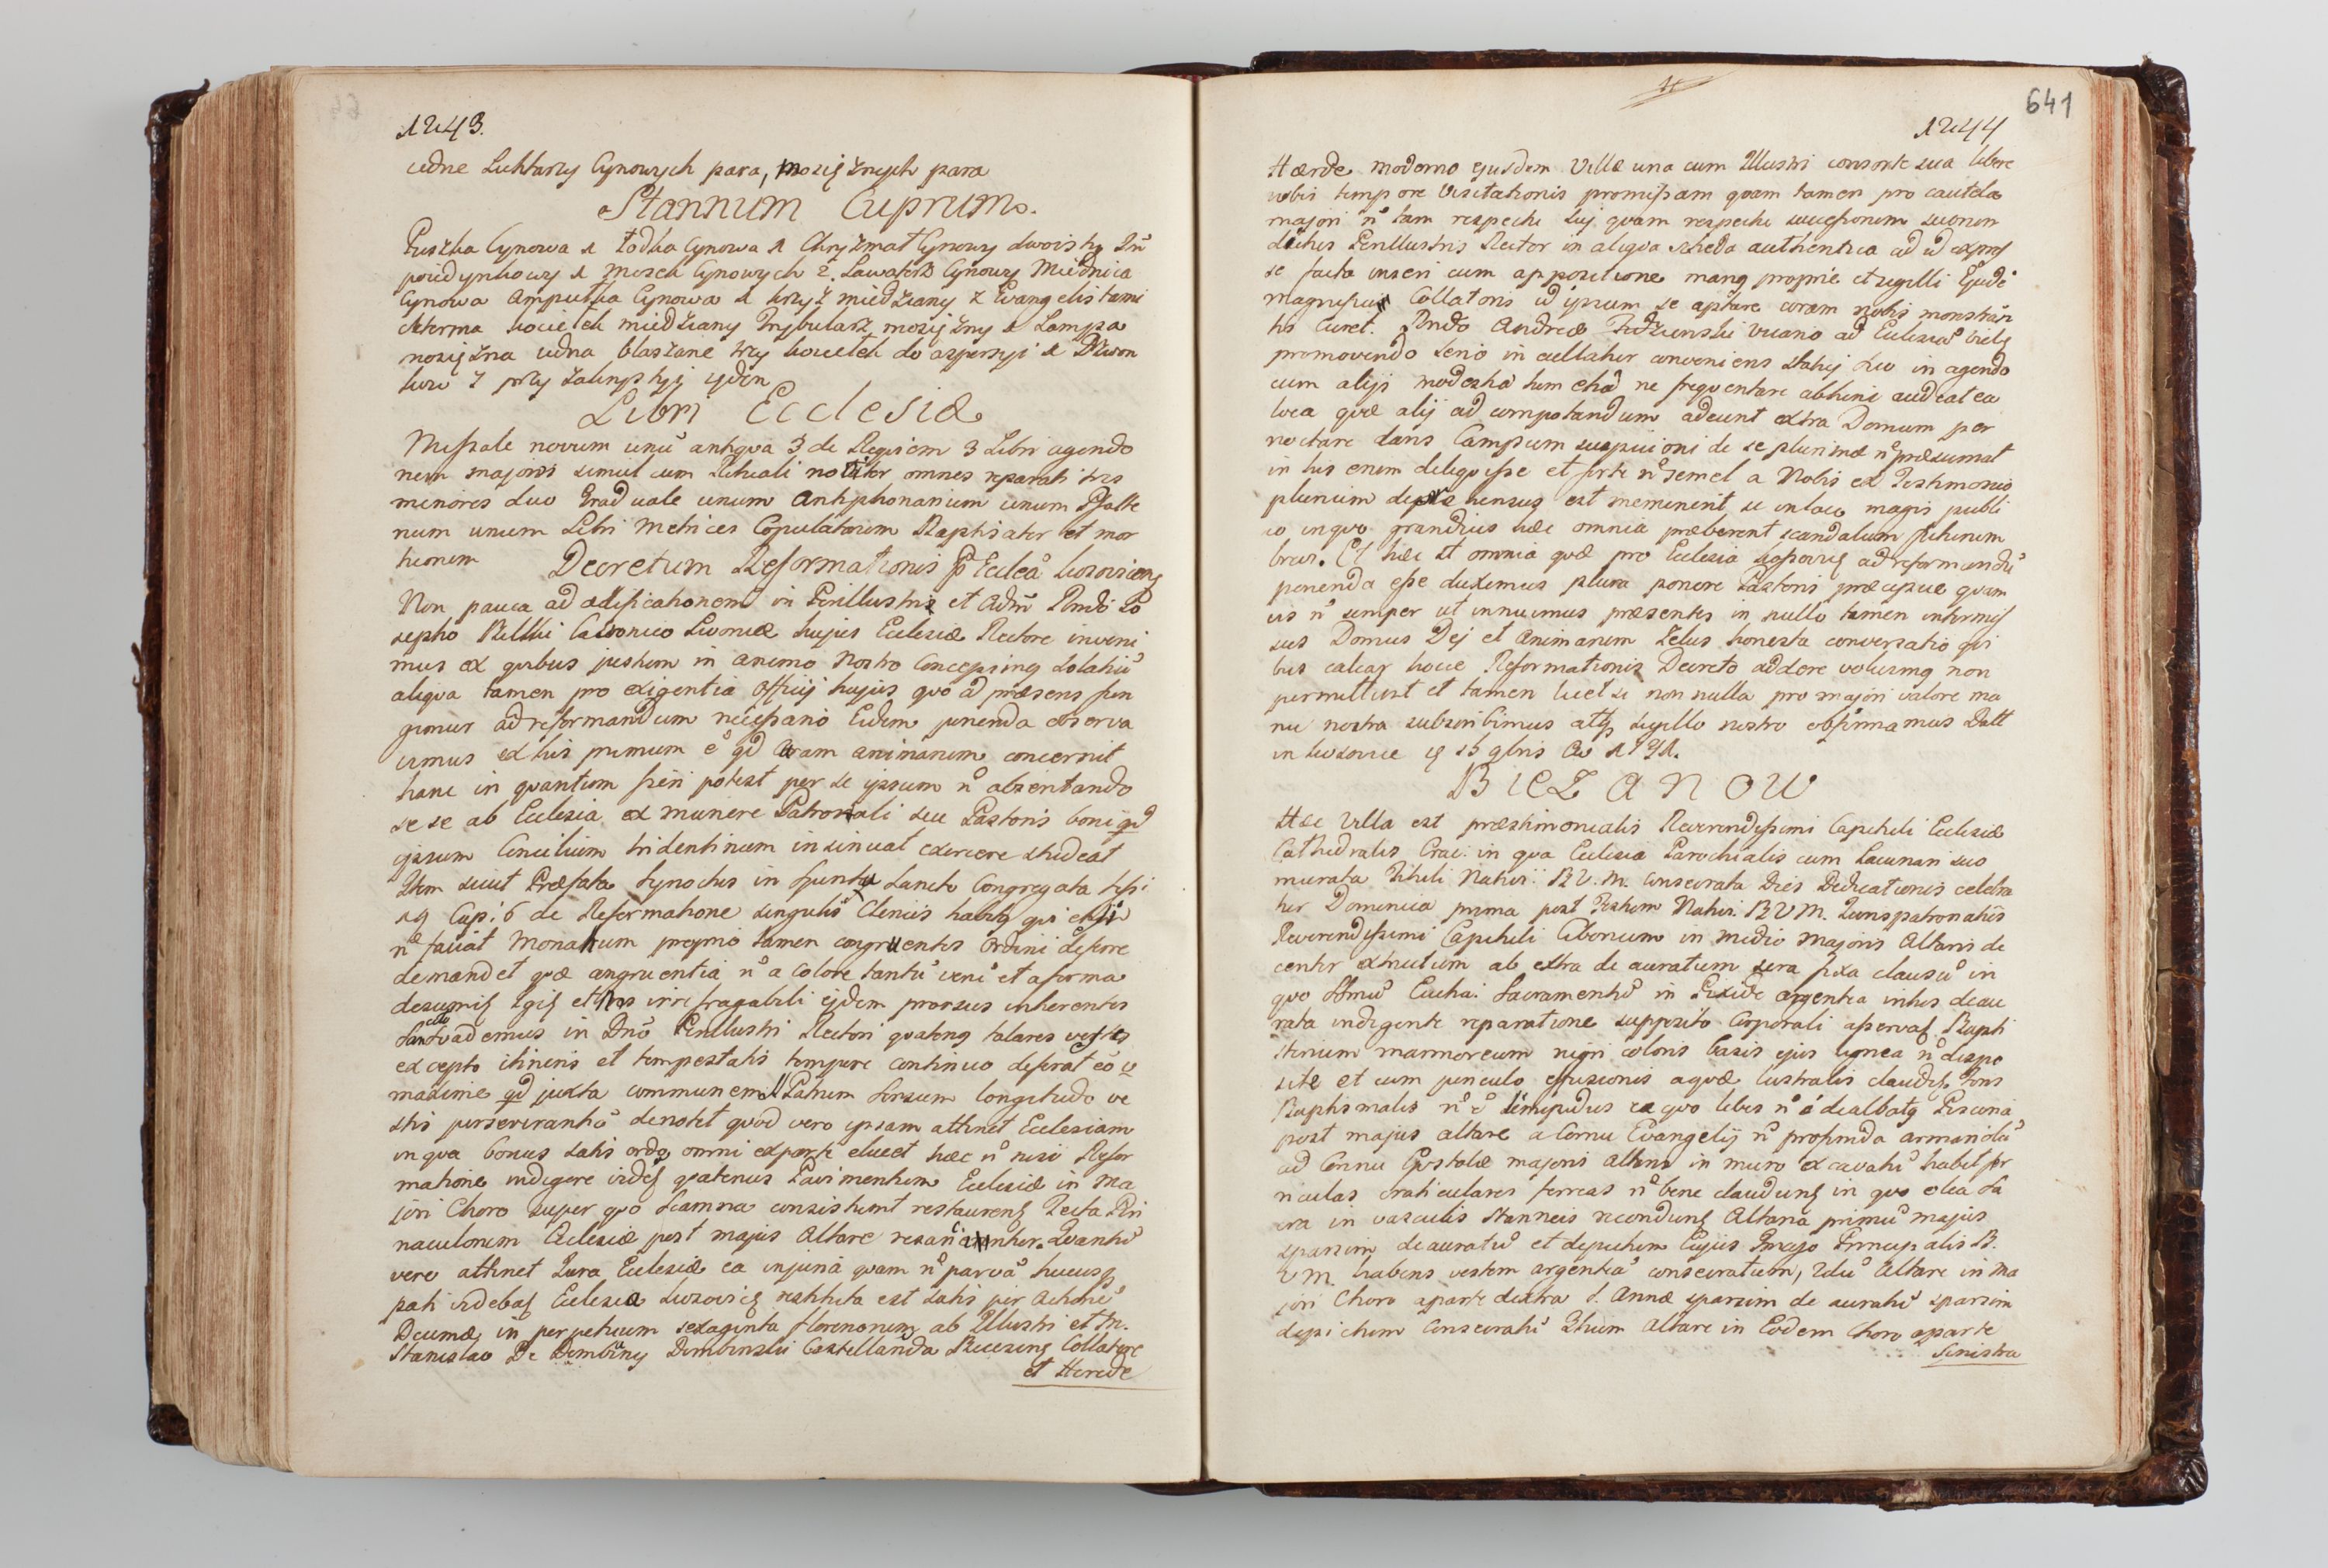 1243.
iedne Lichtarzy Cynowych para, mosiężnych para
Stannum Cuprum.
Puszka Cynowa 1 Łodka Cynowa 1 Chryzmał Cynowy dwoisty
poiedynkowy 1 Cynowych 2. Lawaterz Cynowy Miednica
Cynowa Ampułka Cynowa 1 krzyż miedziany z Evangelistami
kociełek miedziany Trybularz mosiężny 1 Lampa
mosiężna iedna blaszane trzy kociełek do aspersyi 1 Dzwon
kow 2 przy ieden
Libri Ecclesiæ
Missale novum unũ antiqva 3 de Reqviem 3 Libri agendo
rum majores simul cum Rituali omnes reparati tres
minores duo Graduale unum Antiphonarium unum Psalte
rium unum Libri Metrices Copulatorum Baptisator et mor
tuorum Decretum Reformationis p Eccleã
Non pauca ad ædificationem in Perillustri et Adm Rndo Jo
sepho Canonico Livoniæ hujus Ecclesiæ Rectore inveni
mus ex qvibus justum in animo Nostro Concepimq Solatiũ
aliqva tamen pro exigentia Officij hujus qvo ad præsens fun
gimur ad reformandum necessario Eidem ponenda observa
vimus ex his primum ẽ qd Curam animarum concernit
hanc in qvantum fieri potest per se ipsum nõ absentando
se se ab Ecclesia ex munere Patronali seu Pastoris boni qd
ipsum Concilium tridentinum insinuat exercere studeat
Item sicut Præfata Synodus in Spiritu Sancto Congregata Sess:
14 Cap: 6 de Reformatione singulis Clericis qvi etsi
nõ faciat Monachum proprio tamen congruentes Ordini deferre
demandet qvæ congruentia nõ a colore tantũ verũ et a forma
et Nos irrefragabili ejdem prorsus inherentes
Sanctuademus in Dnõ Perillustri Rectori qvatenq talares vestes
excepto itineris et tempestatis tempore continuo deferat eõ
maxime qd juxta communem Patrum Sensum longitudo ve
stis perseverantiã denotet qvod vero ipsam attinet Ecclesiam
in qva bonus Satis ordo omni ex parte elucet hæc nõ nisi Refor
matione indigere qvatenus Pavimentum Ecclesiæ in Ma
jori Choro super qvo Scamna consistunt Tecta Pin
naculorum Ecclesiæ post majus Altare Qvantũ
vero attinet Jura Ecclesiæ ea injuriã qvam nõ parvã hucusq
pati Ecclesia restituta est Satis per
Decimæ in perpetuum sexaginta florenorum ab Illustri et
Stanislao De Dembiny Dembinski Castellanida Collatore
et Hærede
641
1244
Hærde moderno ejusdem Villæ una cum Illustri consorte sua libere
nobis tempore Visitationis promissam qvam tamen pro cautela
majori nõ tam respectu Suj qvam respectu successorum suorum
dictus Perillustris Rector in aliqva scheda authentica ad id
se facta inseri cum appositione manq proprie et sigilli
Collatoris id ipsum se aptare coram nobis
tis curet. Rndo Andreæ Vicario ad Ecclesiã
promovendo serio in aliis conveniens Statuj suo in agendo
cum alijs modestia tum etiã ne freqventare abhinc audeat ea
loca qvæ alij ad compotandum adeunt extra Domum per
noctare dans Campum suspicioni de se plurimæ nõ præsumat
in his enim deliqvisse et forte nõ semel a Nobis ex Testimonio
plurium deprehensus est meminerit si in loco magis publi
co in qvo grandius hæc omnia præberent scandalum
brevi. Et hæc st omnia qvæ pro Ecclesia ad reformandũ
ponenda esse duximus plura ponere Pastoris præcipue qvam
vis nõ semper ut innuimus præsentis in nullo tamen intermis
sus Domus Dej et Animarum Zelus honesta conversatio qvi
bus calcar hocce Reformationis Decreto addere voluimq non
permittunt et tamen non nulla pro majori valore ma
nu nostra subscribimus atq sigillo nostro obfirmamus Datt
in 15 9bris Ao 1741.
BIEZANOW
Hæc Villa est præstimonialis Reverendissimi Capituli Ecclesiæ
Cathedralis Crac: in qva Ecclesia Parochialis cum Lacunari suo
murata Tituli Nativi: B.V.M. consecrata Dies Dedicationis celebra
tur Dominica prima post Festum Nativi: B V M. Jurispatronatûs
Reverendissimi Capituli Ciborium in medio Majoris Altaris de
center extructum ab extra deauratum sera fixa clausũ in
qvo SSmũ Eucha: Sacramentũ in Pixide argentea intus deau
rata indigente reparatione supposito Corporali Bapti
sterium marmoreum nigri coloris basis ejus lignea nõ dispo
sita et cum effusionis aqvæ lustralis Fons
Baptismalis nõ ẽ limpidus ex qvo lebes nõ ẽ dealbatq Piscina
post majus altare a Cornu Evangelij nõ profunda armariolũ
ad Cornu Epistolæ majoris Altaris in muro excavatũ habet for
niculas craticulares ferreas nõ bene in qvo olea Sa
cra in vasculis Stanneis Altaria primũ majus
sparsim deauratũ et depictum Cujus Imago Principalis B.
V M. habens vestem argenteã consecratum, 2dũ Altare in Ma
jori Choro a parte dextra S. Annæ sparsim de auratũ sparsim
depictum Consecratũ 3tium Altare in Eodem Choro a parte
Sinistra